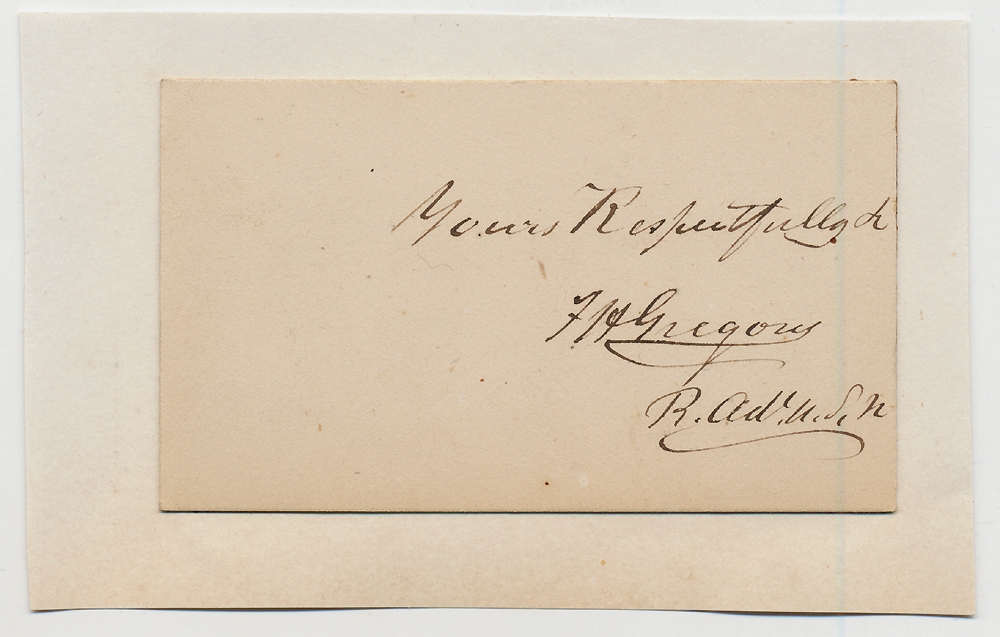 Yours Respectfully &
F H Gregory
R. Adl. U. S. N